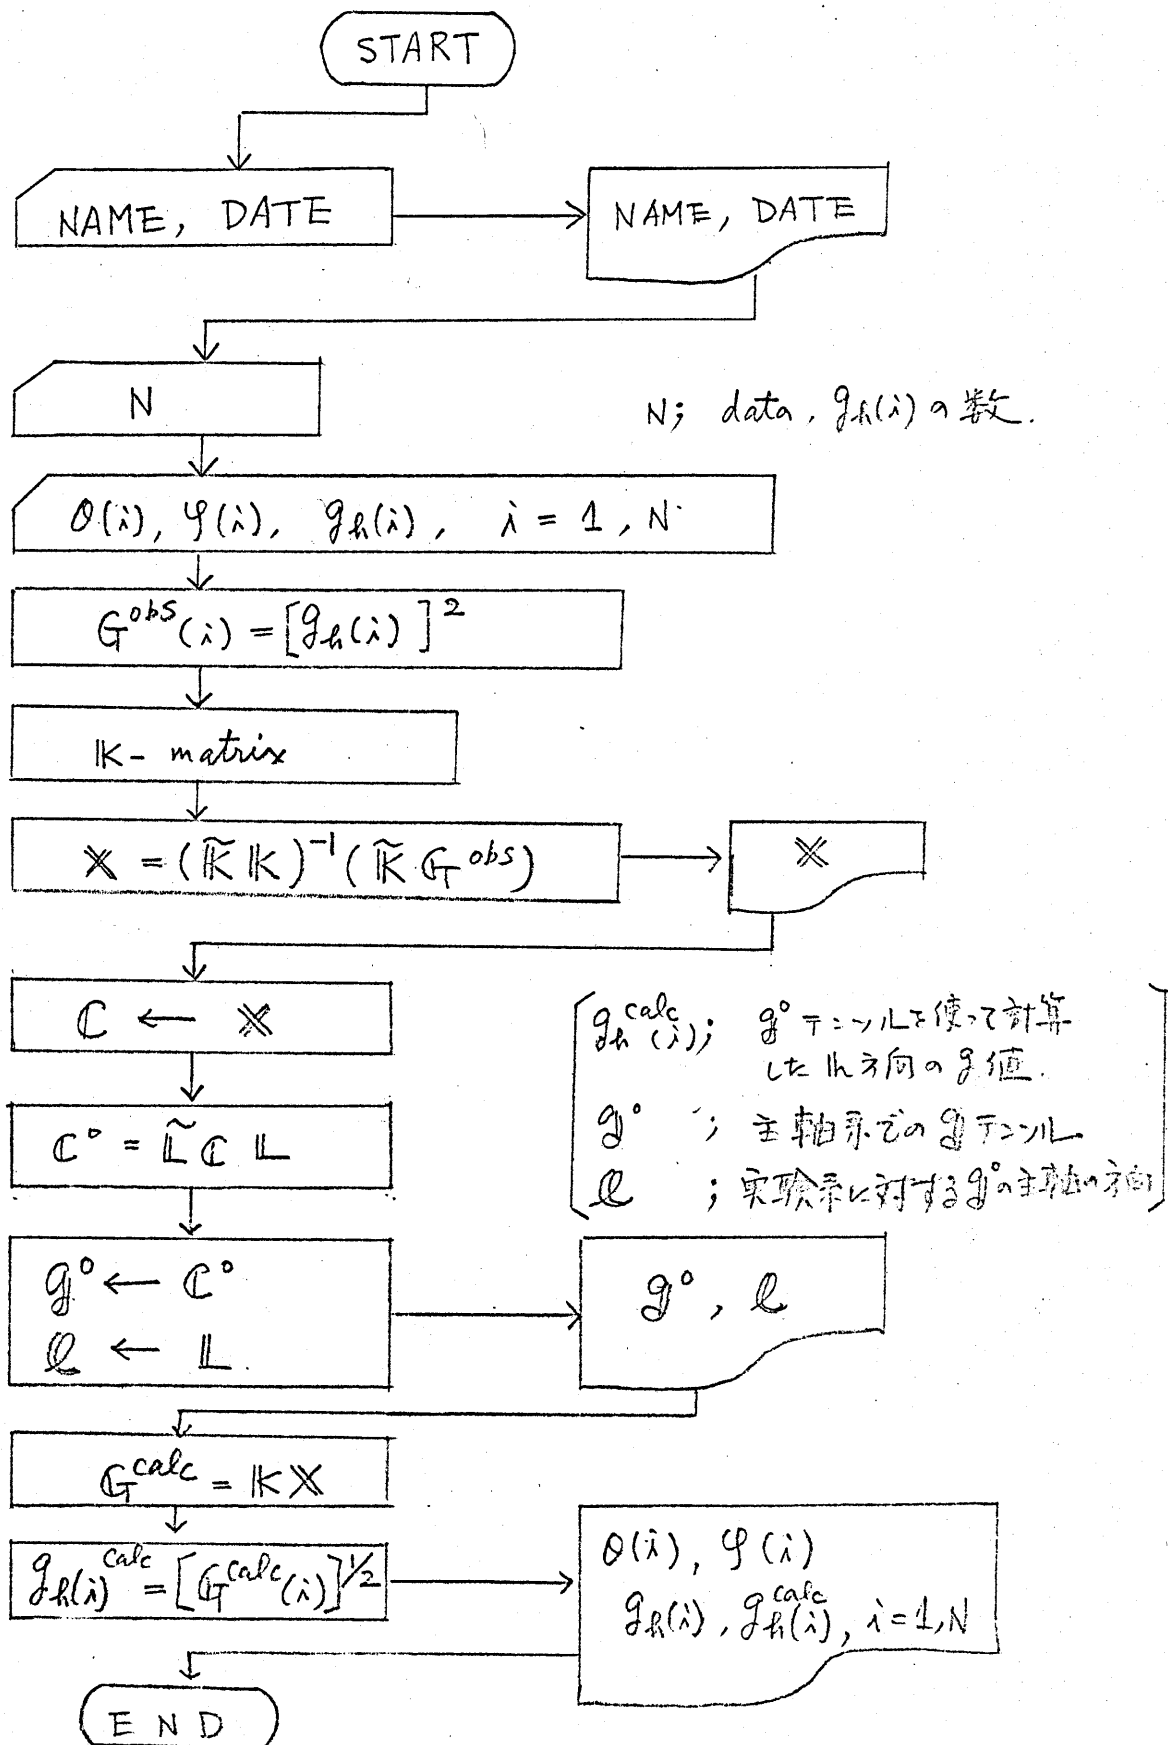 START
NAME, DATE
NAME, DATE
N
N; data, g_h(i) の数.
θ(i), φ(i), g_h(i), i = 1, N
G^obs(i) = [g_h(i)]^2
𝕂- matrix
𝕏 = (𝕂̃ 𝕂)^-1 (𝕂̃ 𝔾^obs)
𝕏
ℂ ← 𝕏
g_h^calc(i); g° テンソルを使って計算
した 𝕙 方向の g 値.
g° ; 主軸系での g テンソル
ℓ ; 実験系に対する g° の主軸の方向
ℂ° = 𝕃̃ ℂ 𝕃
g° ← ℂ°
ℓ ← 𝕃.
g°, ℓ
𝔾^calc = 𝕂𝕏
g_h(i)^calc = [𝔾^calc(i)]^1/2
θ(i), φ(i)
g_h(i), g_h^calc(i), i = 1, N
END